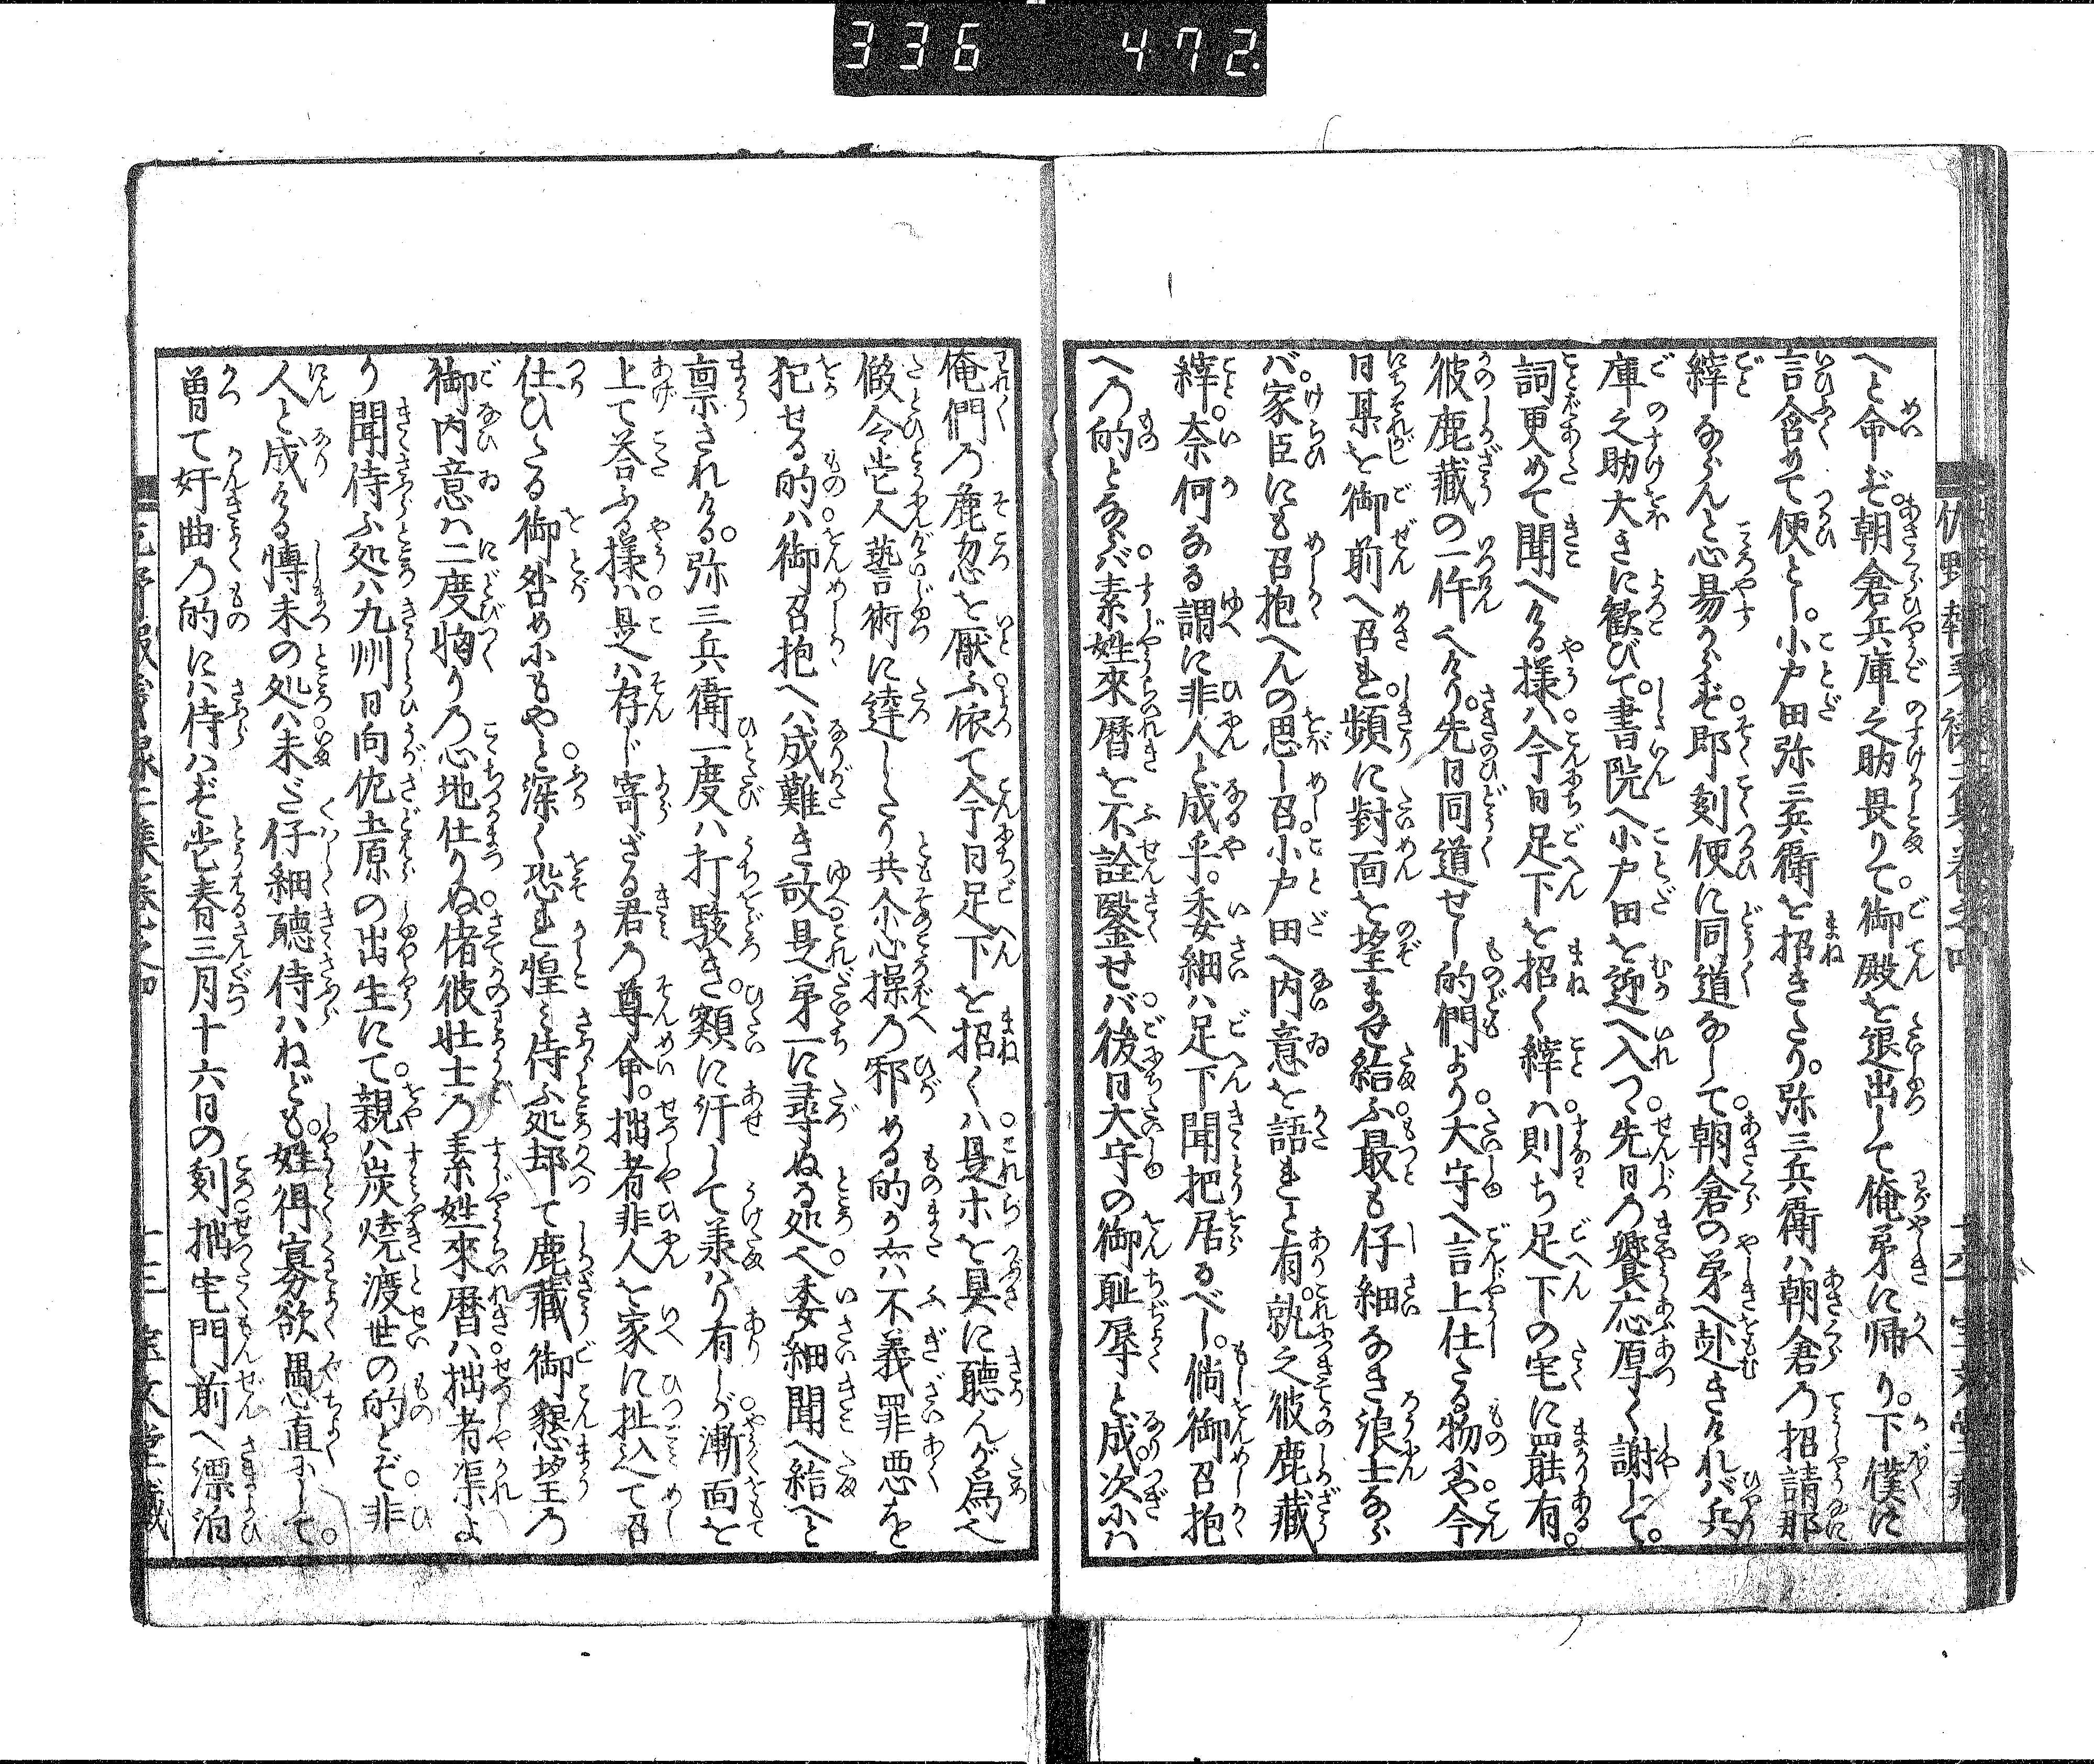 336 472
へと命ず。朝倉兵庫之助畏りて。御殿を退出して俺弟に帰り。下僕に
言含めて便とし。小戸田弥三兵衛を招きたり。弥三兵衛ハ朝倉乃招請那
縡ならんと心易からず。即刻便に同道なして。朝倉の弟へ赴きけれバ兵
庫之助大きに歓びて。書院へ小戸田を迎へ入つ。先日乃饗応厚く謝して。
詞更めて聞へける様ハ。今日足下を招く縡ハ。則ち足下の宅に罷有。
彼鹿蔵の一件なり。先日同道せし的們より。大守へ言上仕たる物にや。今
日某を御前へ召れ。頻に対面を望ませ給ふ。最も仔細なき浪士なら
バ。家臣にも召抱へんの思し召。小戸田へ内意を語れと有。就之彼鹿蔵
縡。奈何なる謂に非人と成乎。委細ハ足下聞把居るべし。倘御召抱
への的となら〻バ。素姓来暦を不詮鑿せバ。後日大守の御耻辱と成。次にハ
俺們乃鹿忽を厭ふ。依て今日足下を招くハ。是ホを具に聴んが為也
假令壱人藝術に達したり共。心操乃邪める的か。亦ハ不義罪悪を
犯せる的ハ。御召抱へハ成難き故。是第一に尋ぬる処也。委細聞へ給へと
禀されける。弥三兵衛一度ハ打駭き。額に汗して羕ハり有しが。漸面を
上て荅ふる様ハ。是ハ存じ寄ざる君乃尊命。拙者非人を家に扯込て召
仕ひたる御咎めにもやと。深く恐れ惶ミ侍ふ処。却て鹿蔵御懇望乃
御内意ハ。二度恟り乃心地仕りぬ。偖彼壮士乃素姓来暦ハ。拙者渠よ
り聞侍ふ処ハ。九州日向佐土原の出生にて。親ハ炭焼渡世の的とぞ。非
人と成ける愽末の処ハ。未ざ仔細聴侍ハねども。姓得寡欲愚直にして。
曽て奸曲乃的にハ侍ハず。壱春三月十六日の刻。拙宅門前へ漂泊